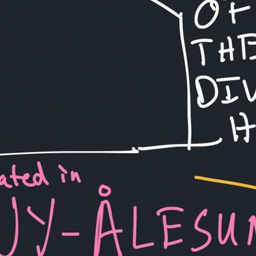 OF
THE
DIV
H
ated in
UY-ÅLESUN